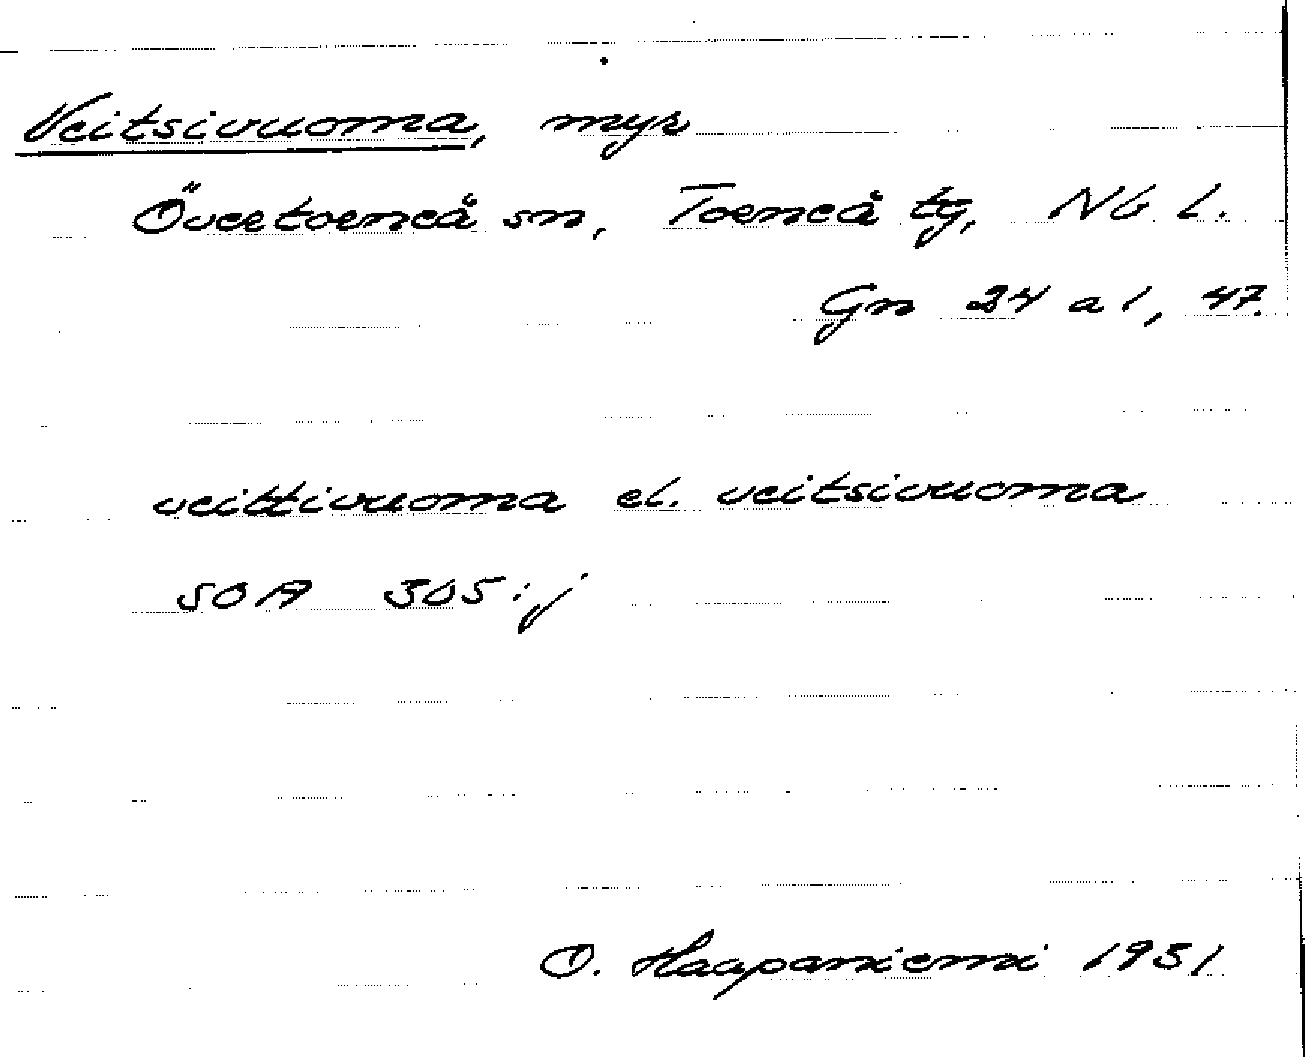 Veitsivuoma, myr
Övertorneå sn, Torneå tg, Nb l.
Gn 24 a 1, 47.
veittivuoma el. veitsivuoma
SOA 305:j
O. Haapaniemi 1931